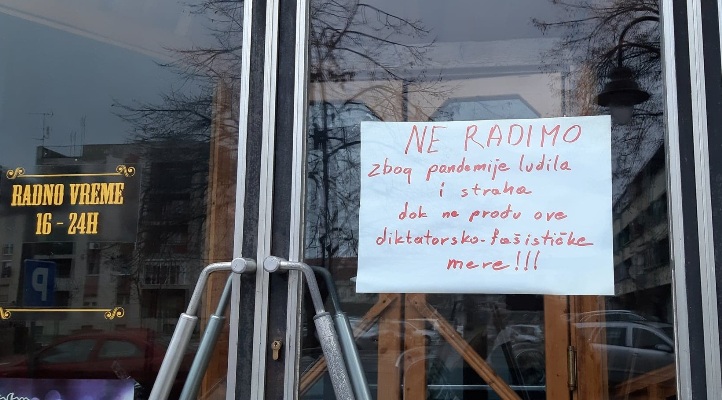 RADNO VREME
16 - 24H
P
NE RADIMO
zbog pandemije ludila
i straha
dok ne prođu ove
diktatorsko-fašističke
mere!!!